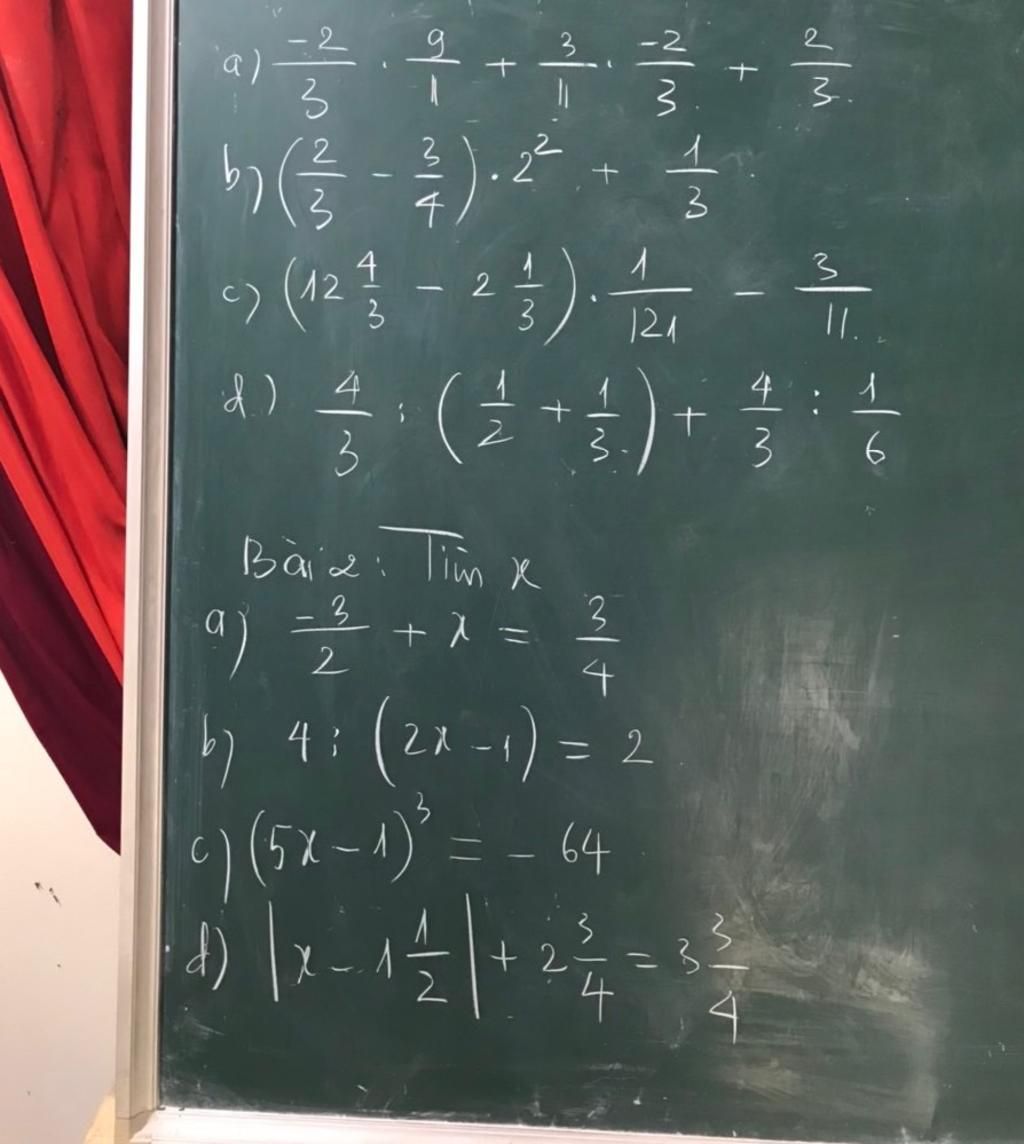 a) \frac{-2}{3} . \frac{9}{11} + \frac{3}{11} . \frac{-2}{3} + \frac{2}{3}
b) (\frac{2}{3} - \frac{3}{4}) . 2^2 + \frac{1}{3}
c) (12\frac{4}{3} - 2\frac{1}{3}) . \frac{1}{121} - \frac{3}{11}
d) \frac{4}{3} : (\frac{1}{2} + \frac{1}{3}) + \frac{4}{3} : \frac{1}{6}
Bài 2: Tìm x
a) \frac{-3}{2} + x = \frac{3}{4}
b) 4 : (2x - 1) = 2
c) (5x - 1)^3 = - 64
d) |x - 1\frac{1}{2}| + 2\frac{3}{4} = 3\frac{3}{4}